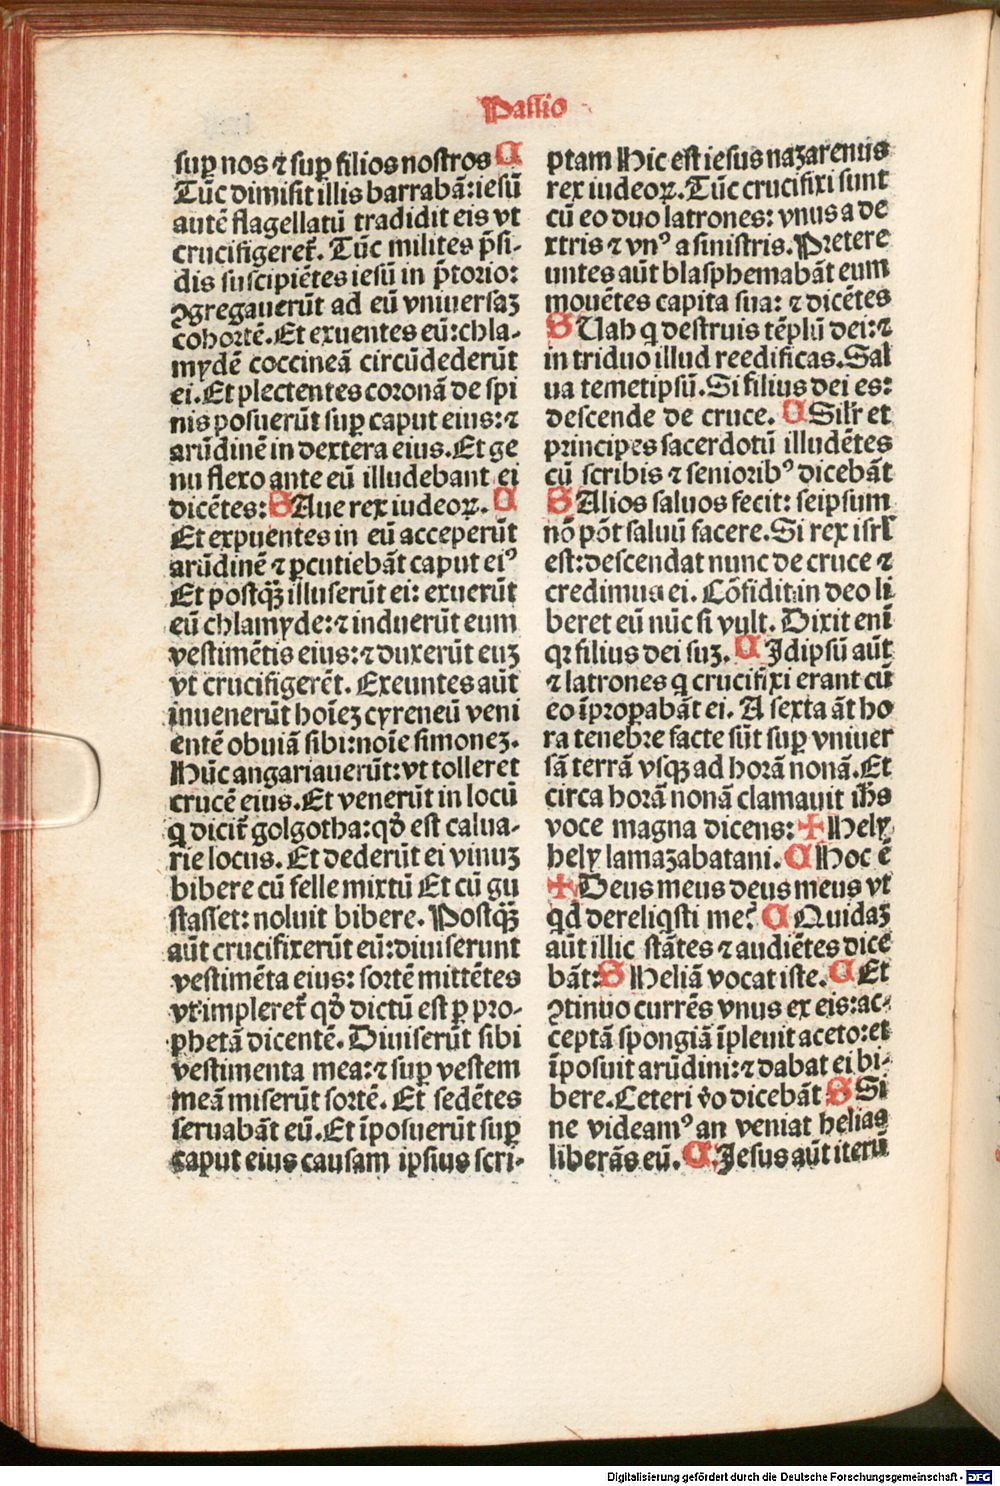 Passio
sup̱ nos ⁊ sup̱ filios nostros C
Tūc dimisit illis barrabā: iesū
autē flagellatū tradidit eis vt
crucifigeret᷑. Tūc milites p̄si-
dis suscipiētes iesū in p̄torio:
ꝯgregauerūt ad eū vniuersaʒ
cohortē. Et exuentes eū: chla-
mydē coccineā circūdederūt
ei. Et plectentes coronā de spi
nis posuerūt sup̱ caput eius: ⁊
arūdinē in dextera eius. Et ge
nu flexo ante eū illudebant ei
dicētes: S Aue rex iudeoꝝ. C
Et expuentes in eū acceperūt
arūdinē ⁊ ꝑcutiebāt caput eiꝰ
Et postqꝫ̄ illuserūt ei: exuerūt
eū chlamyde: ⁊ induerūt eum
vestimētis eius: ⁊ duxerūt euʒ
vt crucifigerēt. Exeuntes aūt
inuenerūt hoīeʒ cyreneū veni
entē obuiā sibi: noīe simoneʒ.
Hūc angariauerūt: vt tolleret
crucē eius. Et venerūt in locū
q dicit᷑ golgotha: qd̄ est calua-
rie locus. Et dederūt ei vinuʒ
bibere cū felle mixtū Et cū gu
stasset: noluit bibere. Postqꝫ̄
aūt crucifixerūt eū: diuiserunt
vestimēta eius: sortē mittētes
vt impleret᷑ qd̄ dictū est ꝑ pro-
phetā dicentē. Diuiserūt sibi
vestimenta mea: ⁊ sup̱ vestem
meā miserūt sortē. Et sedētes
seruabāt eū. Et īposuerūt sup̱
caput eius causam ipsius scri-
ptam Hic est iesus nazarenus
rex iudeoꝝ. Tūc crucifixi sunt
cū eo duo latrones: vnus a de
xtris ⁊ vnꝰ a sinistris. Pretere
untes aūt blasphemabāt eum
mouētes capita sua: ⁊ dicētes
S Uah q destruis tēplū dei: ⁊
in triduo illud reedificas. Sal
ua temetipsū. Si filius dei es:
descende de cruce. C Silr̄ et
principes sacerdotū illudētes
cū scribis ⁊ senioribꝰ dicebāt
S Alios saluos fecit: seipsum
nō pōt saluū facere. Si rex isrl̄
est: descendat nunc de cruce ⁊
credimus ei. Cōfidit in deo li
beret eū nūc si vult. Dixit enī
qꝛ filius dei suʒ. C Idipsū aūt
⁊ latrones q crucifixi erant cū
eo īproꝑabāt ei. A sexta āt ho
ra tenebre facte sūt sup̱ vniuer
sā terrā vsqꝫ ad horā nonā. Et
circa horā nonā clamauit ih̄s
voce magna dicens: ✠ Hely
hely lamazabatani. C Hoc ē
✠ Deus meus deus meus vt
qd dereliqsti me? C Quidaʒ
aūt illic stātes ⁊ audiētes dice
bāt: S Heliā vocat iste. C Et
ꝯtinuo currēs vnus ex eis: ac-
ceptā spongiā īpleuit aceto: et
īposuit arūdini: ⁊ dabat ei bi-
bere. Ceteri v̄o dicebāt S Si
ne videamꝰ an veniat helias
liberās eū. C Jesus aūt iterū
Digitalisierung gefördert durch die Deutsche Forschungsgemeinschaft - DFG